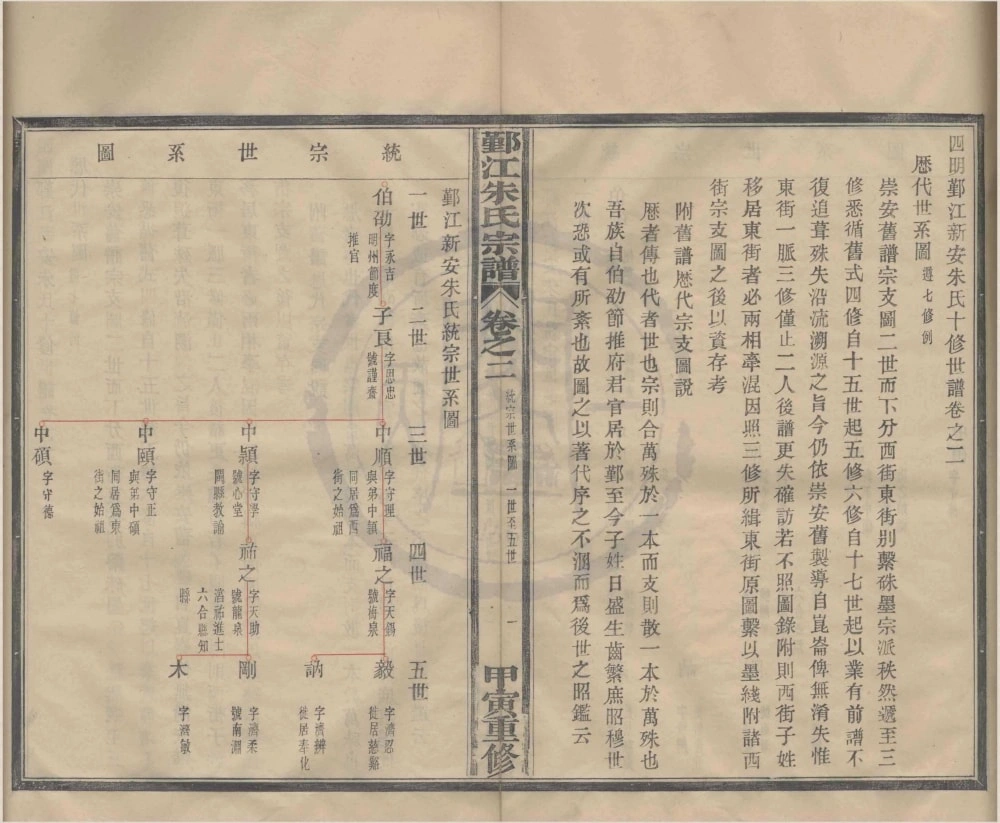 四明鄞江新安朱氏十修世譜卷之二
歷代世系圖遵七修例
崇安舊譜宗支圖二世而下分西街東街別繫硃墨宗派秩然遞至三
修悉循舊式四修自十五世起五修六修自十七世起以業有前譜不
復追葺殊失沿流溯源之旨今仍依崇安舊製導自崑崙俾無淆失惟
東街一脈三修僅止二人後譜更失確訪若不照圖錄附則西街子姓
移居東街者必兩相牽混因照三修所緝東街原圖繫以墨綫附諸西
街宗支圖之後以資存考
附舊譜歷代宗支圖說
歷者傳也代者世也宗則合萬殊於一本而支則散一本於萬殊也
吾族自伯劭節推府君官居於鄞至今子姓日盛生齒繁庶昭穆世
次恐或有所紊也故圖之以著代序之不溷而爲後世之昭鑑云
鄞江朱氏宗譜
卷之二
統宗世系圖
一世至五世
一
甲寅重修
統宗世系圖
鄞江新安朱氏統宗世系圖
一世
二世
三世
四世
五世
伯劭
字永吉
明州節度
推官
子良
字思忠
號謹齋
中順
字守理
與弟中頴
同居爲西
街之始祖
福之
字天錫
號梅泉
毅
字濟忍
徙居慈谿
訥
字濟辨
徙居奉化
中頴
字守學
號心堂
閩縣教諭
祐之
字天助
號龍泉
淳祐進士
六合縣知
縣
剛
字濟柔
號南淵
木
字濟敏
中頤
字守正
與弟中碩
同居爲東
街之始祖
中碩
字守德